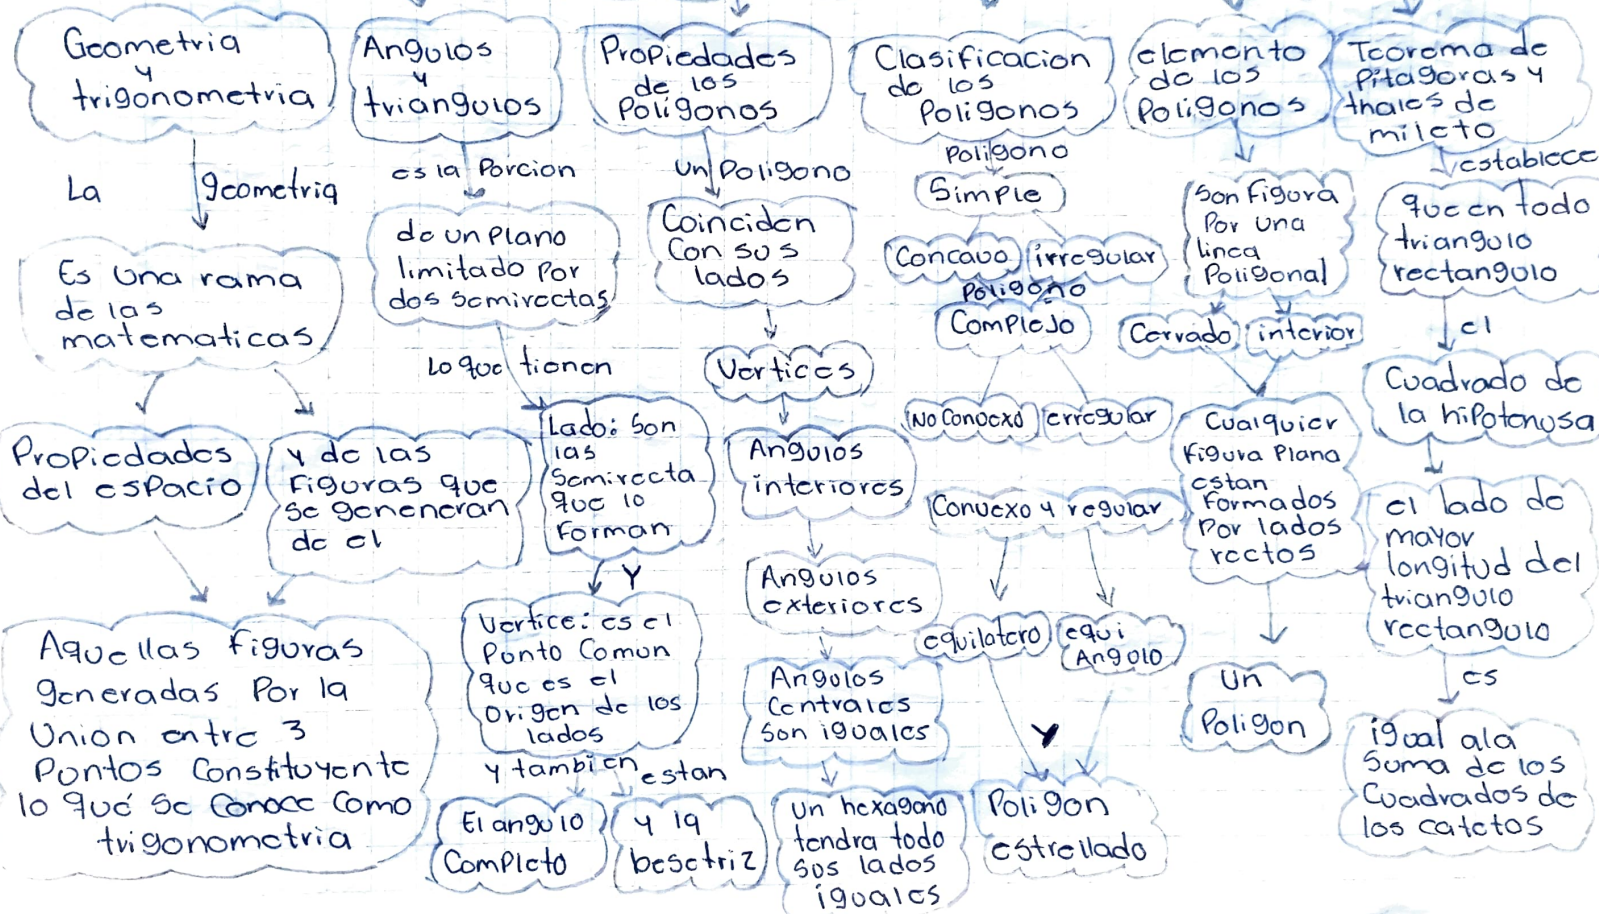 Geometria
y
trigonometria
La
geometria
Es una rama
de las
matematicas
Propiedades
del espacio
y de las
figuras que
se geneneran
de el
Aquellas figuras
generadas Por la
Union entre 3
Puntos Constituyente
lo qué se conoce como
trigonometria
Angulos
y
triangulos
es la Porcion
de un plano
limitado por
dos semirectas
Lo que tienen
Lado: Son
las
Semirecta
que lo
Forman
Y
Vertice: es el
Punto Comun
que es el
Origen de los
lados
y tambien estan
El angulo
Completo
y la
besetriz
Propiedades
de los
Polígonos
Un Poligono
Coinciden
Con sus
lados
Vertices
Angulos
interiores
Angulos
exteriores
Angulos
Centrales
Son iguales
Un hexagono
tendra todo
sus lados
iguales
Clasificacion
de los
Poligonos
Poligono
Simple
Concavo irregular
Poligono
Complejo
No Convexo erregular
Convexo y regular
equilatero
equi
Angulo
Y
Poligon
estrellado
elemento
de los
Poligonos
Son Figura
Por una
linea
Poligonal
Cerrado interior
Cualquier
Figura Plana
estan
Formados
Por lados
rectos
Un
Poligon
Teorema de
Pitagoras y
thales de
mileto
establece
que en todo
triangulo
rectangulo
el
Cuadrado de
la hipotenusa
el lado de
mayor
longitud del
triangulo
rectangulo
es
igual ala
Suma de los
Cuadrados de
los catetos